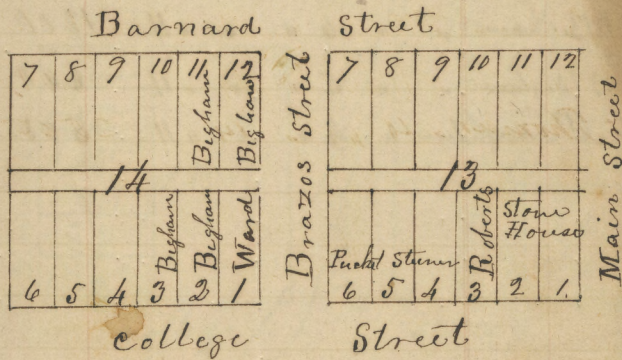 Barnard Street
7 8 9 10 11 12
Bigham
Bigham
14
Bigham
Bigham
Ward
6 5 4 3 2 1
Brazos Street
7 8 9 10 11 12
13
Roberts
Stone
House
6 5 4 3 2 1.
Main Street
College Street